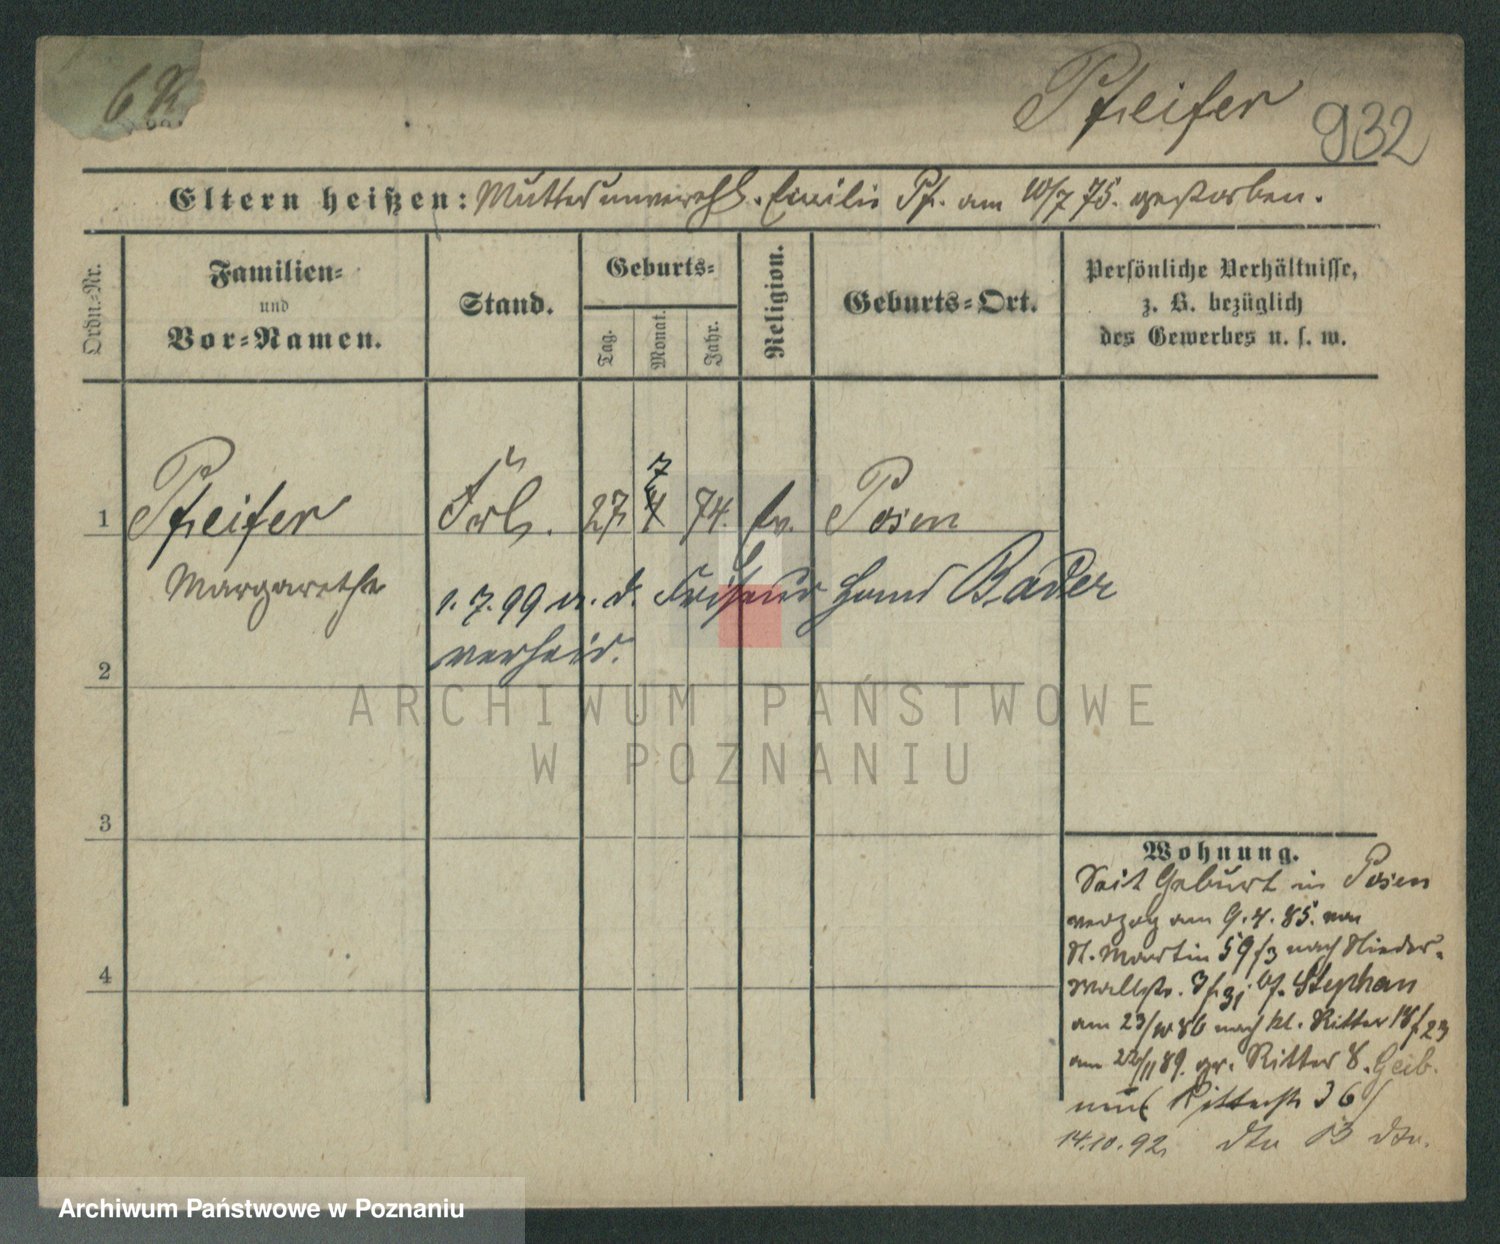 6 K
Pfeifer
932
Eltern heißen: Mutter unverehl. Emilie Pf. am 10/7 75. gestorben.
Ordn.-Nr.
Familien-
und
Vor-Namen.
Stand.
Geburts-
Tag.
Monat.
Jahr.
Religion.
Geburts-Ort.
Persönliche Verhältnisse,
z. B. bezüglich
des Gewerbes u. s. w.
1 Pfeifer Frl. 27 7 74. ev. Posen
Margarethe
1. 7. 99 m. d. Friseur Bader
verheir.
2
3
4
Wohnung.
Seit Geburt in Posen
verzog am 9. 4. 85. von
St. Martin 59/3 nach Nieder-
wallstr. 3 bei Stephan
am 23/10 86 nach kl. Ritter 18/23
am 22/11 89. gr. Ritter 8. Geib.
Ritterstr 36
14.10.92 dto B dto.
ARCHIWUM PAŃSTWOWE
W POZNANIU
Archiwum Państwowe w Poznaniu